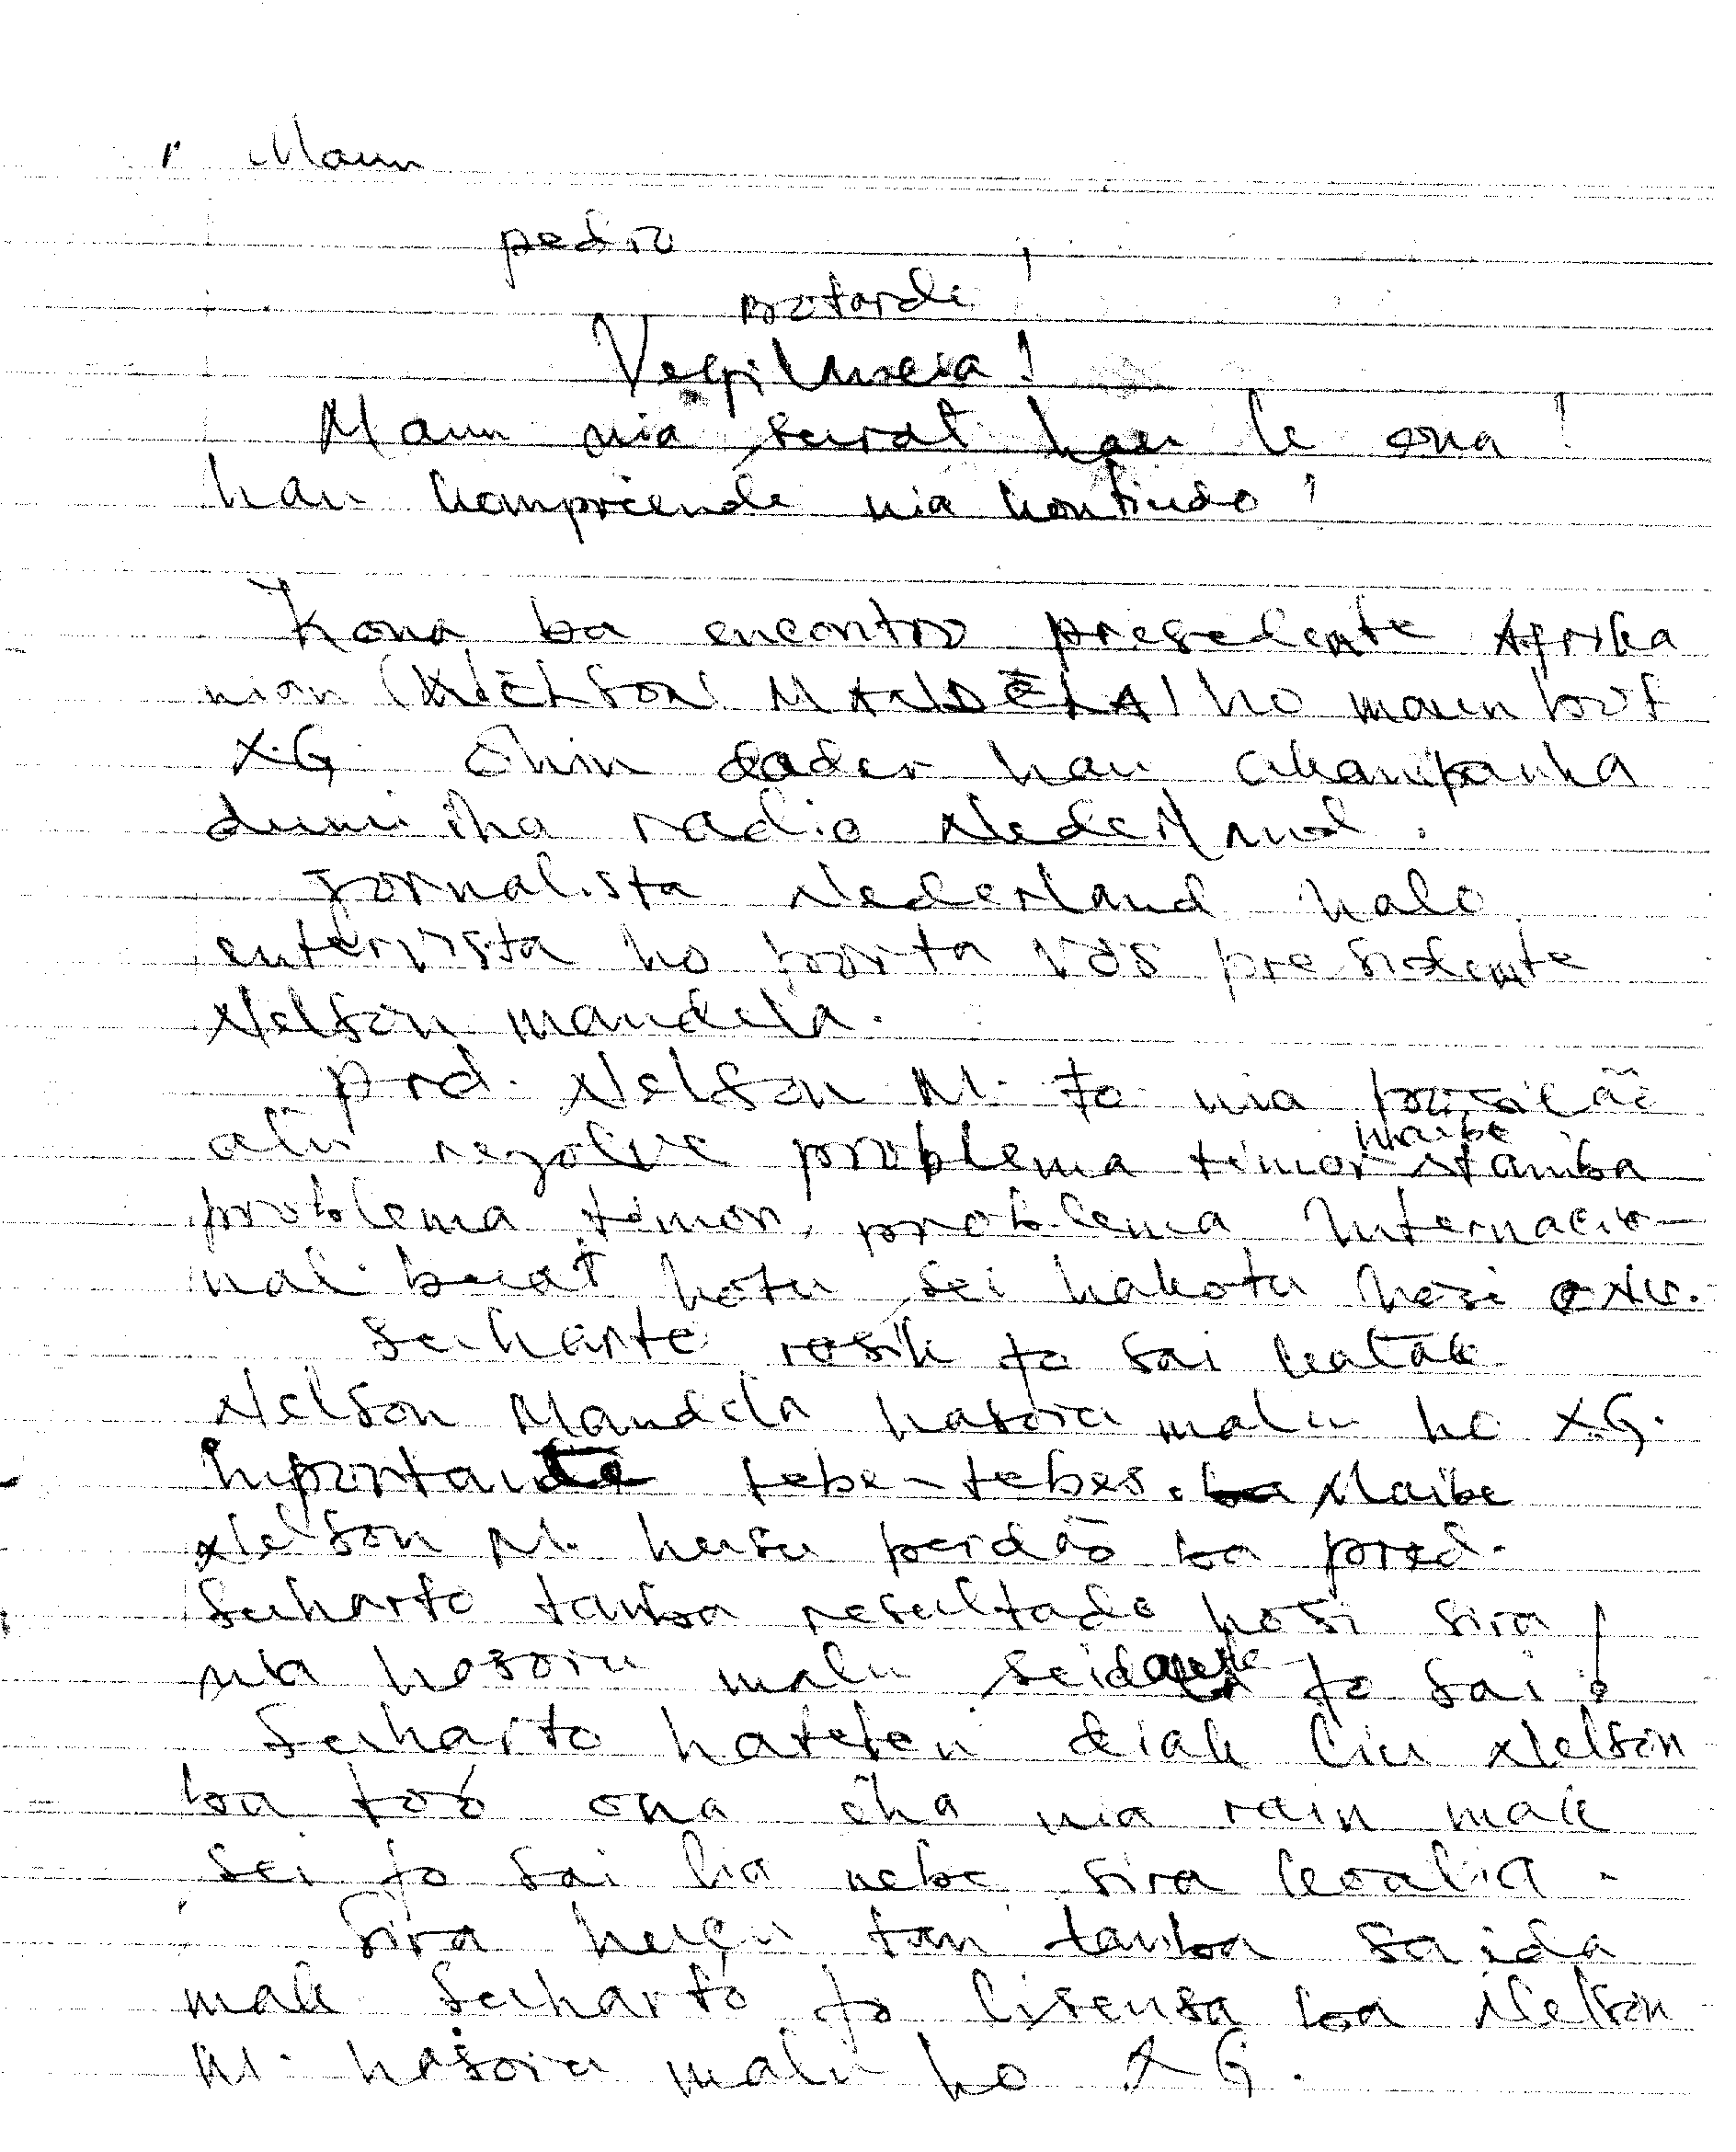 Maun
pedro
Botarde!
Vegilancia!
Maun nia surat hau le ona!
hau kompriende nia kontiudo!
Kona ba encontro presedente Afrika
nian (NELSON MANDELA) ho maun boot
X.G. Ohin dader hau akompanha
dunui iha radio Nederland.
Jornalista Nederland halo
entervista ho porta vós presidente
Nelson mandela.
prd. Nelson M. fo nia posicão
atu rezolve problema timor maibe tamba
problema timor, problema Internacio-
nal. buat hotu sei hakotu hosi ONU.
Suharto rasik fo sai katak
Nelson Mandela hasoru malu ho X.G.
Inportante tebe-tebes. Maibe
Nelson M. husu perdão ba pred.
Suharto tamba resultado hosi sira
nia hasoru malu seidauk fo sai!
Suharto hateten diak liu Nelson
ba too ona iha nia rain mak
sei fo sai lia nebe sira koalia.
Sira huçu tan tamba saida
mak Suharto fo lisensa ba Nelson
M. hasoru malu ho XG.